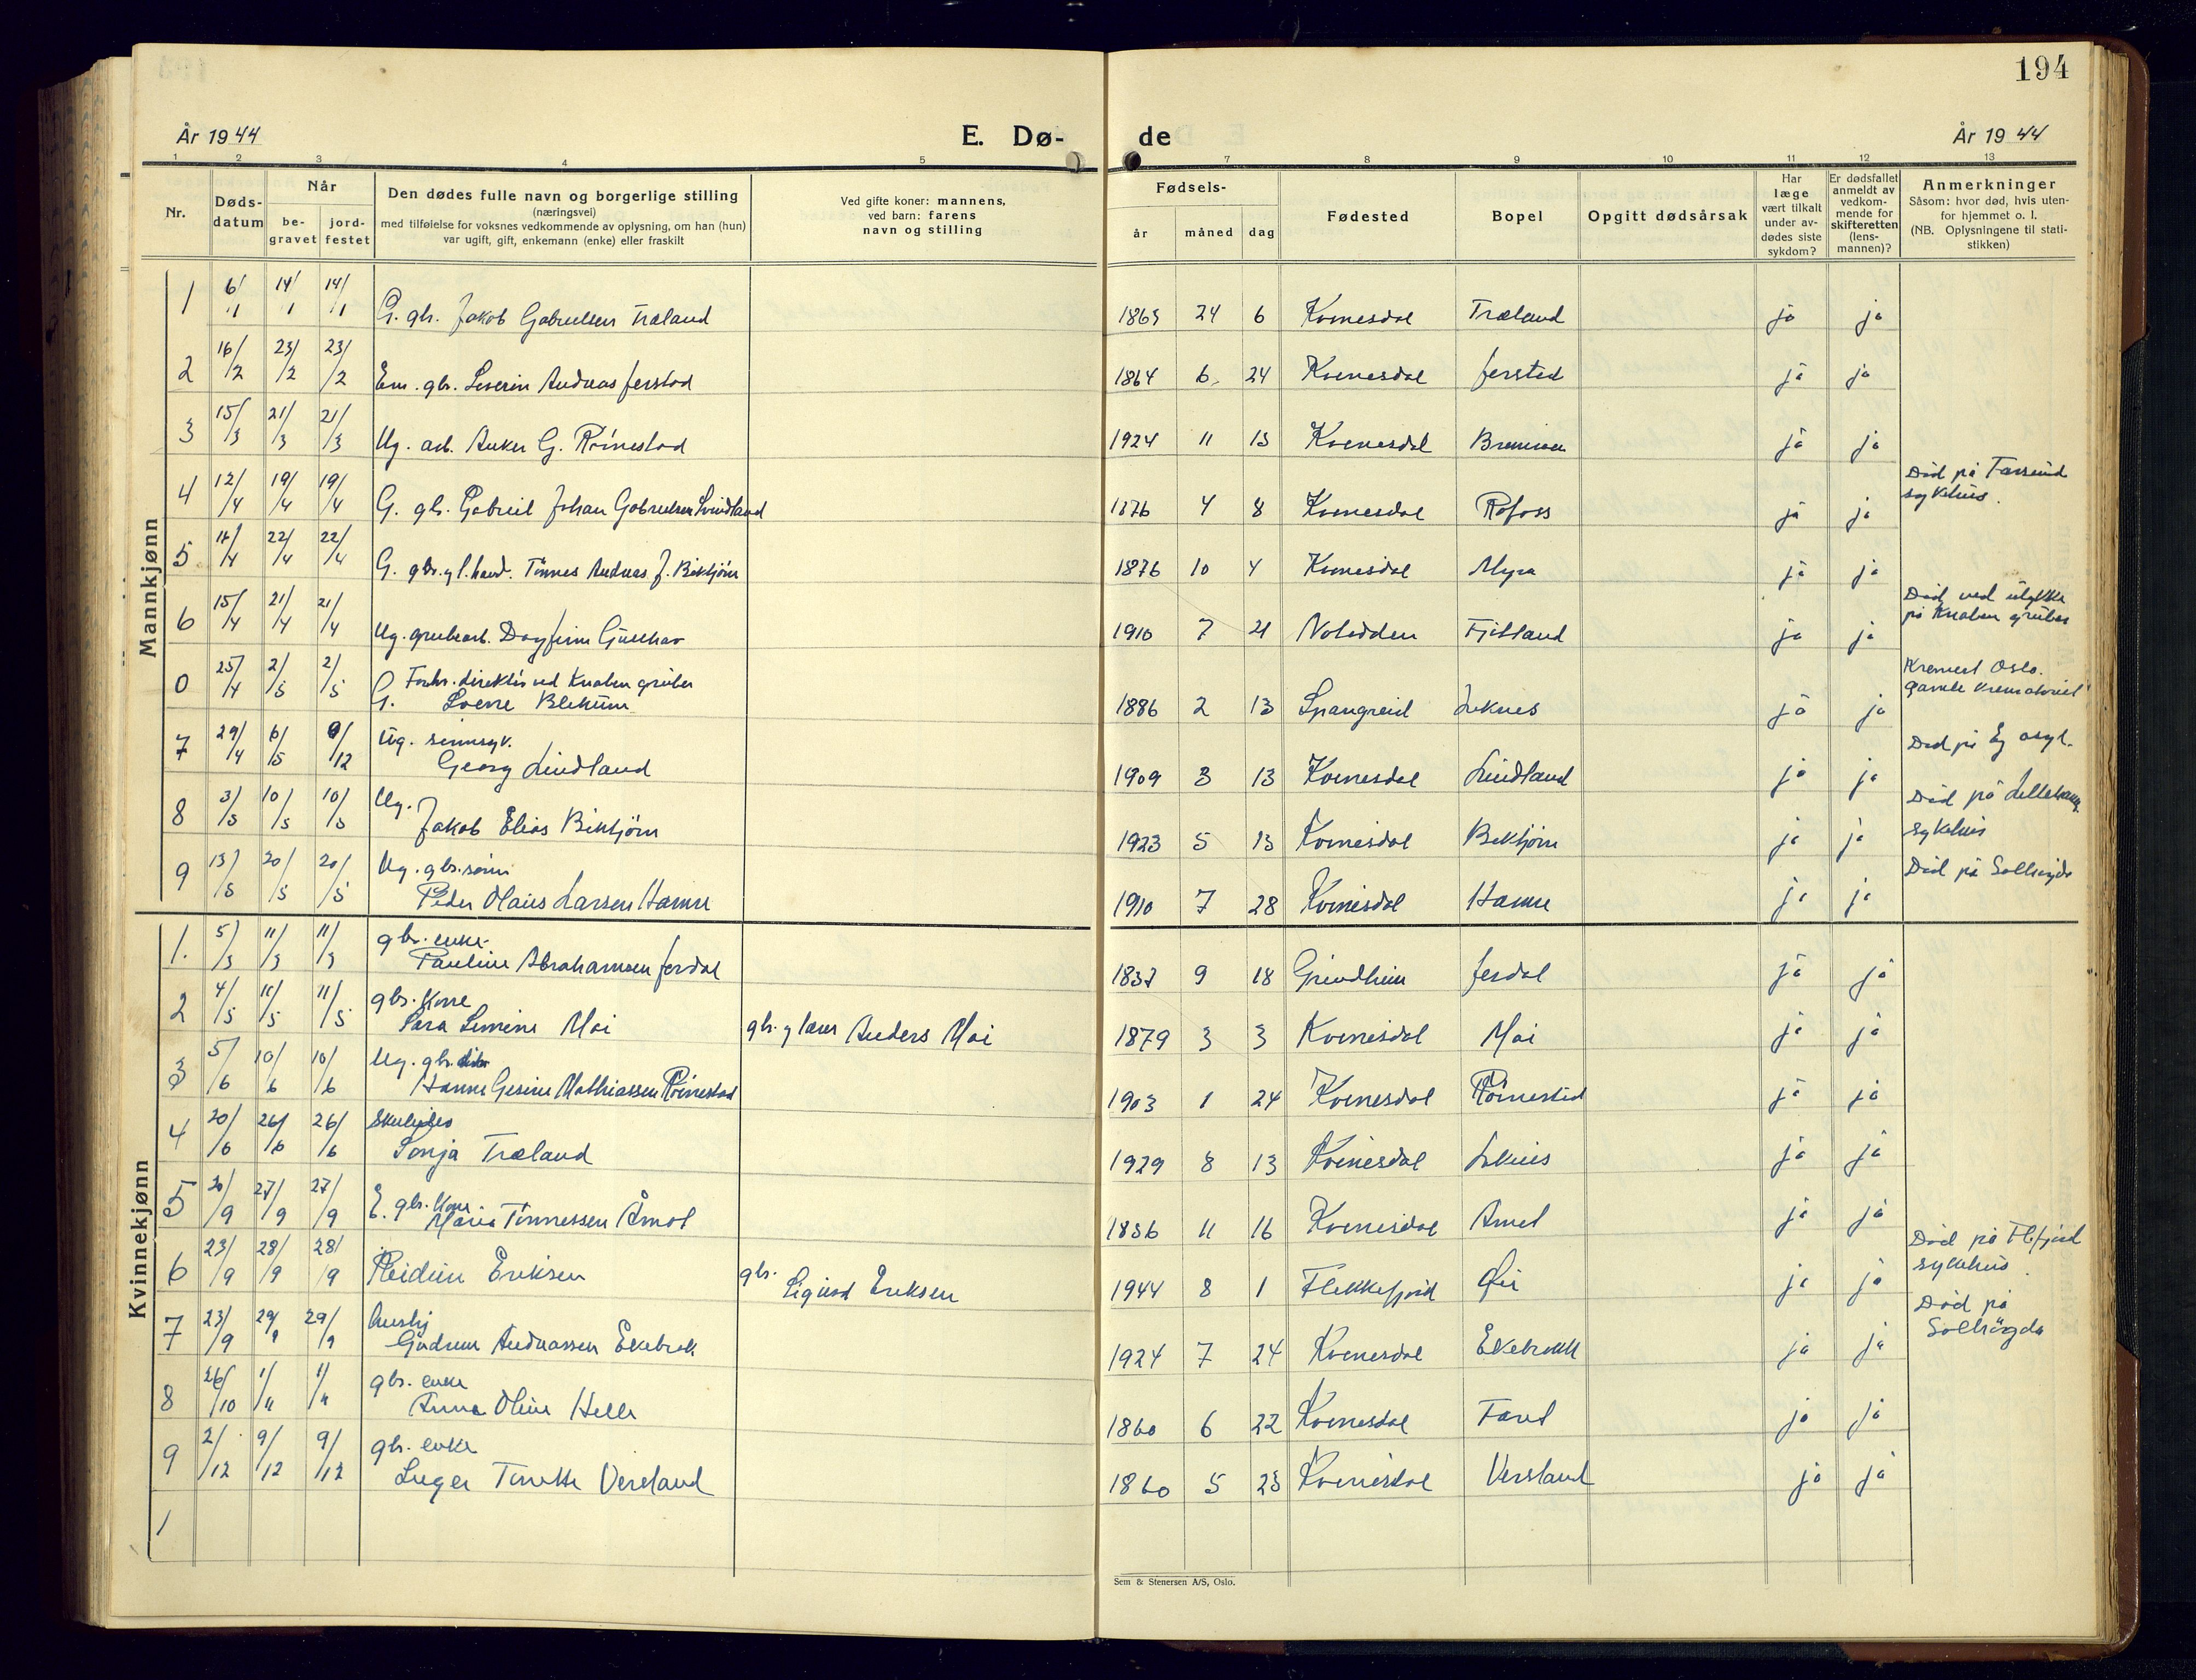 194
År 1944
E. Dø-
de
År 1944
1 2 3 4 5 7 8 9 10 11 12 13
Nr.
Døds-
datum
Når
be-
gravet
jord-
festet
Den dødes fulle navn og borgerlige stilling
(næringsvei)
med tilføielse for voksnes vedkommende av oplysning, om han (hun)
var ugift, gift, enkemann (enke) eller fraskilt
Ved gifte koner: mannens,
ved barn: farens
navn og stilling
Fødsels-
år måned dag
Fødested
Bopel
Opgitt dødsårsak
Har
læge
vært tilkalt
under av-
dødes siste
sykdom?
Er dødsfallet
anmeldt av
vedkom-
mende for
skifteretten
(lens-
mannen)?
Anmerkninger
Såsom: hvor død, hvis uten-
for hjemmet o. l.
(NB. Oplysningene til stati-
stikken)
Mannkjønn
1 6/1 14/1 14/1 G. gbr. Jakob Gabrielsen Træland 1865 24 6 Kvinesdal Træland ja ja
2 16/2 23/2 23/2 Em. gbr. Severin Andreas Jerstad 1864 6 24 Kvinesdal Jerstad ja ja
3 15/3 21/3 21/3 Ug. arb. Anker G. Röinestad 1924 11 15 Kvinesdal ja ja
4 12/4 19/4 19/4 G. gbr. Gabriel Johan Gabrielsen Svindland 1876 4 8 Kvinesdal Rafoss ja ja Död på Farsund
sykehus.
5 14/4 22/4 22/4 G. gbr. Tönnes Andreas J. Biktjörn 1876 10 4 Kvinesdal Myra ja ja
6 15/4 21/4 21/4 Ug. grubearb. Dagfinn Gullhav 1910 7 21 Notodden Fjotland ja ja Död ved ulykke
på Knaben gruber
0 25/4 2/5 2/5 G. Forhv. direktör ved Knaben gruber
Sverre Blekum 1886 2 13 Spangreid Liknes ja ja Kremert Oslo.
gamle krematoriet
7 29/4 6/5 9/12 Ug. sinnsyk.
Georg Lindland 1909 3 13 Kvinesdal Lindland ja ja Död på Eg asyl.
8 3/5 10/5 10/5 Ug.
Jakob Elias Biktjörn 1923 5 13 Kvinesdal Biktjörn ja ja Död på Lilleham.
sykehus
9 13/5 20/5 20/5 Ug. gbr. sönn
Peder Olaus Larsen Hamre 1910 7 28 Kvinesdal Hamre ja ja Död på Solhögda
Kvinnekjønn
1. 5/3 11/3 11/3 gbr. enke.
Pauline Abrahamsen Jerdal 1857 9 18 Grindheim Jerdal ja ja
2 4/5 11/5 11/5 gbr. kone
Sara Semine Moi gbr. og lærer Anders Moi 1879 3 3 Kvinesdal Moi ja ja
3 5/6 10/6 10/6 Ug. gbr.
Hanne Gesine Mathiassen Röinestad 1903 1 24 Kvinesdal Röinestad ja ja
4 20/6 26/6 26/6 Skulepike
Sonja Træland 1929 8 13 Kvinesdal Liknes ja ja
5 20/9 27/9 27/9 E. gbr. kone
Maria Tönnessen Åmot 1856 11 16 Kvinesdal Amot ja ja
6 23/9 28/9 28/9 Reidun Eriksen gbr.
Sigurd Eriksen 1944 8 1 Flekkefjord Öie ja ja Död på Fl.fjord
sykehus
7 23/9 29/9 29/9 Hushj
Gudrun Andreassen Eikebrok 1924 7 24 Kvinesdal Eikebrokk ja ja Död på
Solhögda
8 26/10 1/11 1/11 gbr. enke
Anna Oline Helle 1860 6 22 Kvinesdal Faret ja ja
9 2/12 9/12 9/12 gbr. enke
Inger Tonette Versland 1860 5 23 Kvinesdal Versland ja ja
1
Sem & Stenersen A/S, Oslo.